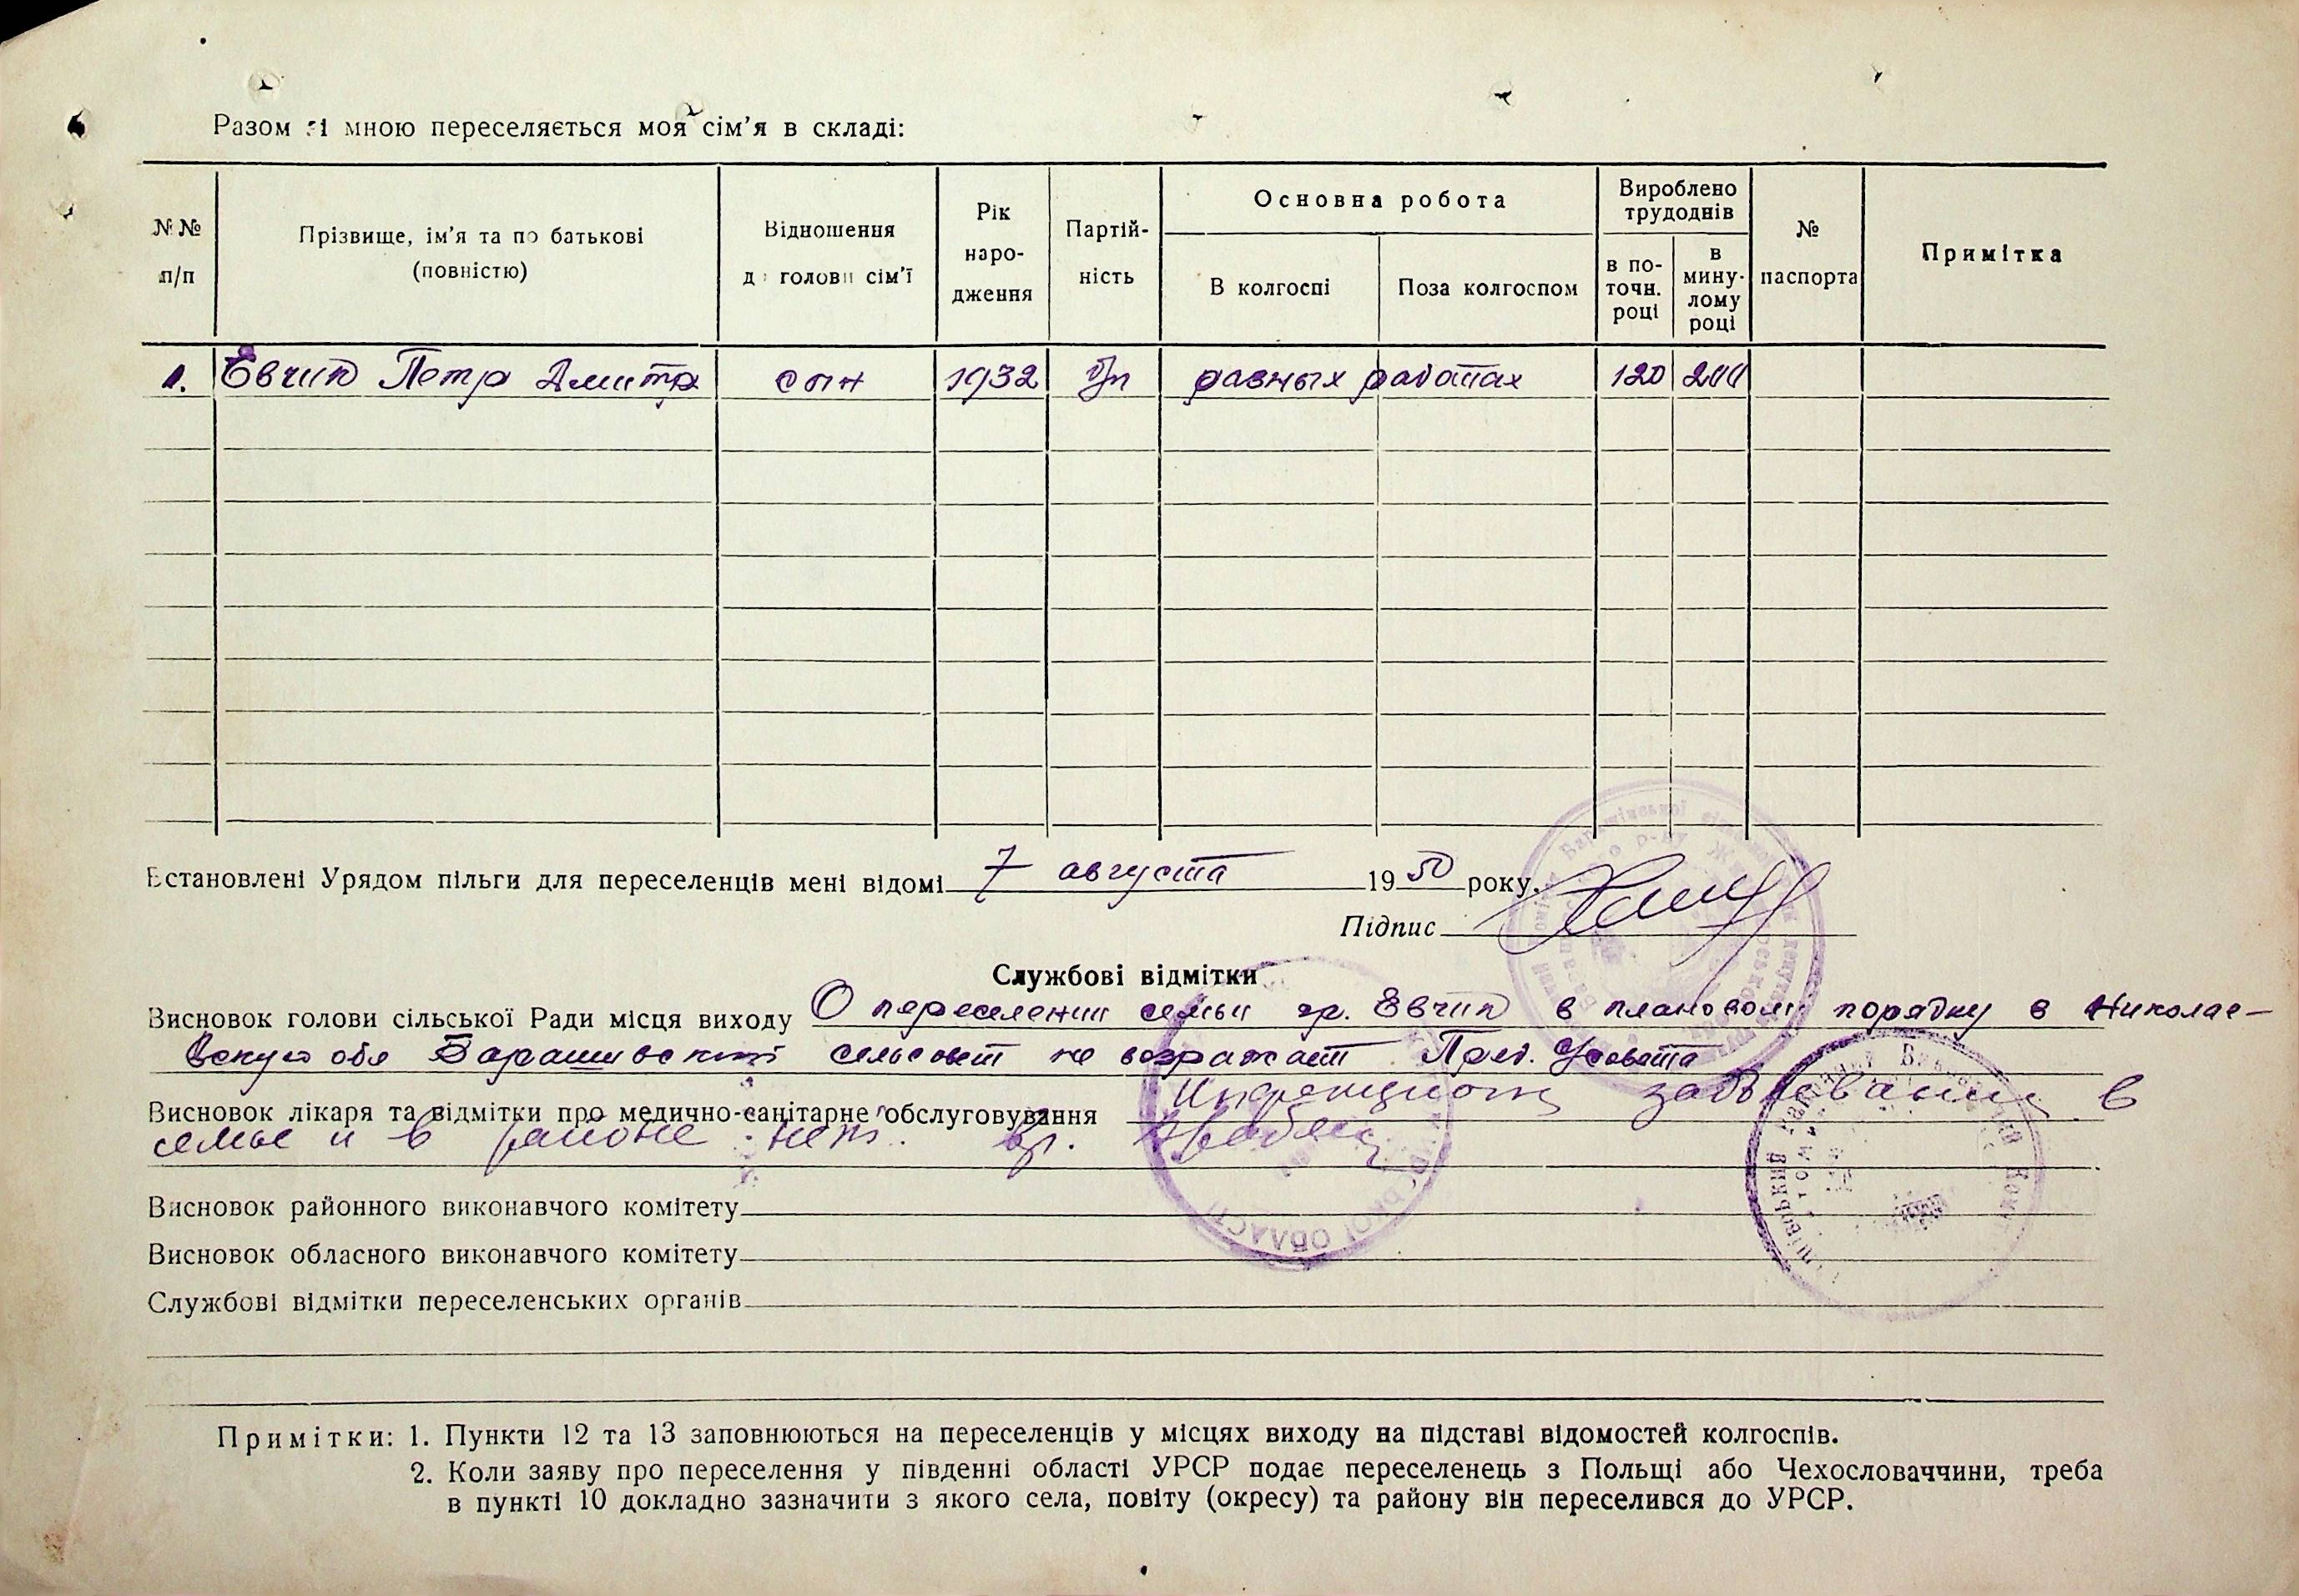 Разом зі мною переселяється моя сім'я в складі:
№№ п/п
Прізвище, ім'я та по батькові (повністю)
Відношення до голови сім'ї
Рік народження
Партійність
Основна робота
В колгоспі
Поза колгоспом
Вироблено трудоднів
в поточн. році
в минулому році
№ паспорта
Примітка
1. Евчин Петр Дмитр сын 1932 б/п разных работах 120 200
Встановлені Урядом пільги для переселенців мені відомі 7 августа 1950 року.
Підпис
Службові відмітки
Висновок голови сільської Ради місця виходу О переселении семьи гр. Евчин в плановом порядку в Николае-
вскую обл Барашивский сельсовет не возражает. Пред. с/совета
Висновок лікаря та відмітки про медично-санітарне обслуговування Инфекционн заболеваний в
семье и в районе нет. Вр.
Висновок районного виконавчого комітету
Висновок обласного виконавчого комітету
Службові відмітки переселенських органів
Примітки: 1. Пункти 12 та 13 заповнюються на переселенців у місцях виходу на підставі відомостей колгоспів.
2. Коли заяву про переселення у південні області УРСР подає переселенець з Польщі або Чехословаччини, треба
в пункті 10 докладно зазначити з якого села, повіту (окресу) та району він переселився до УРСР.
ОБЛАСТІ